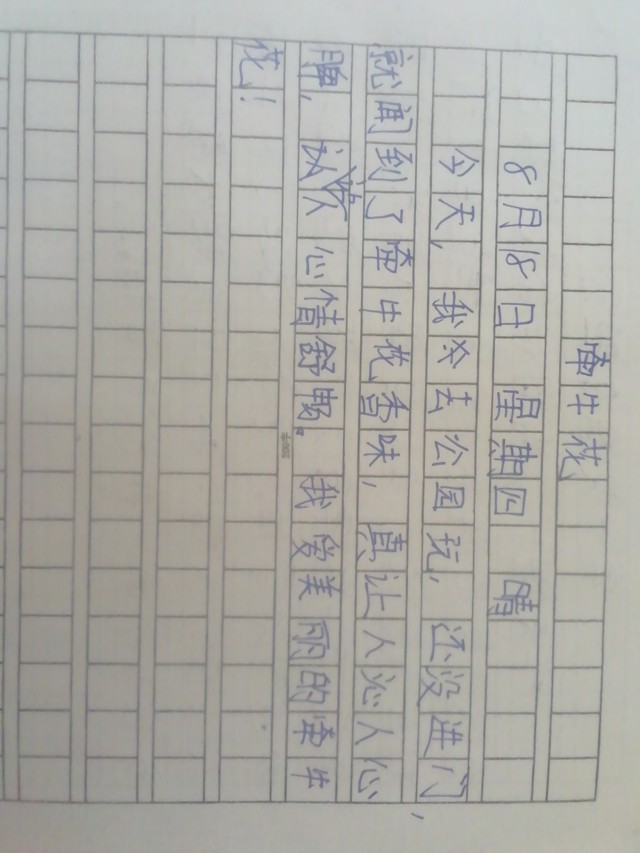 牵牛花
8月18日 星期四 晴
今天,我去公园玩,还没进门,
就闻到了牵牛花香味,真让人沁人心
脾,认人心情舒畅。我爱美丽的牵牛
花!